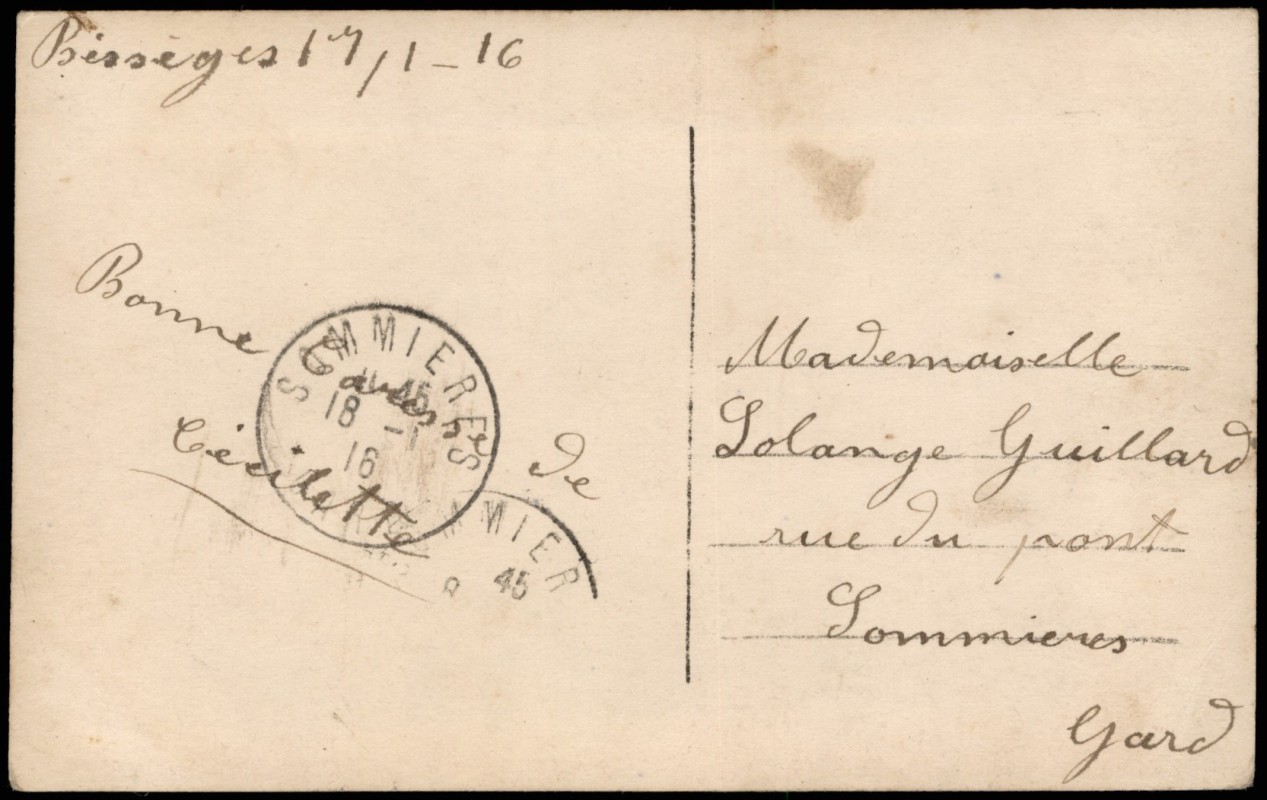 Bessèges 17/1-16
Bonne Caresse de
Cécilette
SOMMIERES
11 45
18 -1
16
MMIER
8 45
Mademoiselle
Solange Guillard
rue du pont
Sommieres
Gard